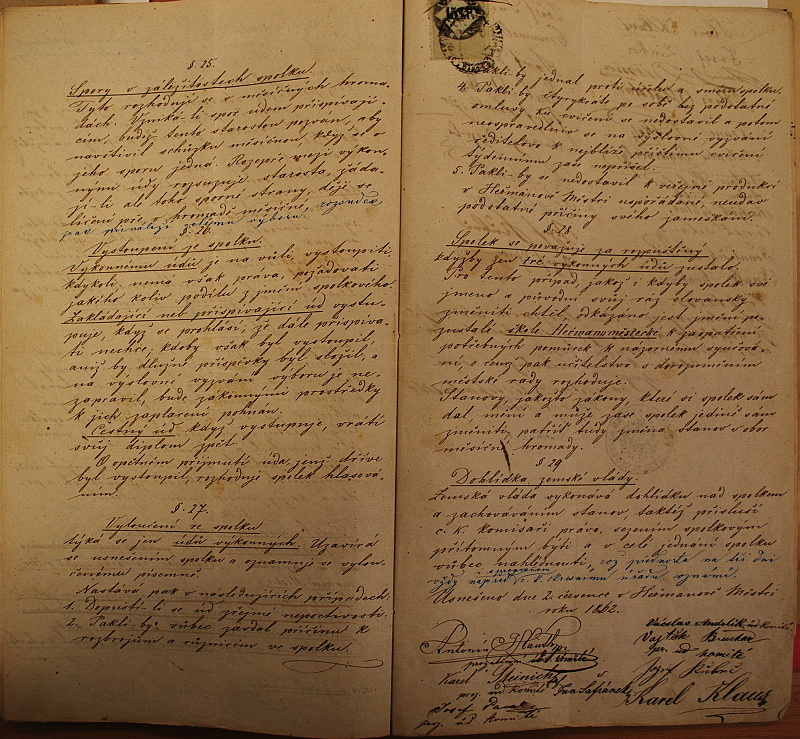 §. 25.
Spory v záležitostech spolku.
Tyto rozhodují se v měsíčných hroma-
dách. Vznikl-li spor údem přispívají-
cím, budiž tento starostou pozván, aby
navštívil schůzku měsíčnou, když se o
jeho sporu jedná. Rozepře mezi výkon-
nými údy rozsuzuje starosta, žáda-
jí-li ale toho sporné strany, děje se
líčení pře v hromadě měsíčné, rozsudek
pak přináleží celému výboru.
§. 26.
Vystoupení ze spolku.
Výkonnému údu je na vůli, vystoupiti
kdykoli, nemá však práva, požadovati
jakého koliv podílu z jmění spolkového.
Zakládající neb přispívající úd vystu-
puje, když se prohlásí, že dále přispíva-
ti nechce, kdoby však byl vystoupil,
aniž by dlužné příspěvky byl složil, a
na výslovní vyzvání výboru je ne-
zapravil, bude zákonnými prostředky
k jich zaplacení pohnán.
Čestný úd když vystupuje, vrátí
svůj diplom zpět.
O opětném přijmutí úda, jenž dříve
byl vystoupil, rozhoduje spolek hlasová-
ním.
§. 27.
Vyloučení ze spolku
týká se jen údů výkonných. Uzavírá
se usnešením spolku a oznamuje se vylou-
čenému písemně.
Nastává pak v následujících případech:
1. Dopustí-li se úd zřejmé nepoctivosti.
2. Pakli-by vůbec zavdal příčinu k
rozbrojům a různicím ve spolku.
Pakli by jednal proti účelu a směru spolku.
4. Pakli by čtyrykráte po sobě bez podstatné
omluvy ku cvičení se nedostavil a potom
neospravedlniv se na výslovné vyzvání
ředitelovo k nejbližé příštímu cvičení
týdennímu zase nepřišel.
5. Pakli-by se nedostavil k veřejné produkci
v Heřmanově Městci uspořádané, neudav
podstatné příčiny svého zameškání.
§ 28
Spolek se považuje za rozpuštěný
kdyžby jen tré výkonných údů zustalo.
Pro tento případ, jakož i kdyby spolek své
jmeno a původní svůj ráz slovanský
změniti chtěl, odkázáno jest jmění po-
zustalé škole Heřmanoměstecké k zaopatření
potřebných pomůcek k názornému vyučová-
ní, o čemž pak učitelstvo s dorozuměním
městské rady rozhoduje.
Stanovy, jakožto zákony, které si spolek sám
dal, mění a může zase spolek jedině sám
změniti, patříť tudy změna stanov v obor
měsíčné hromady.
§ 29
Dohlídka zemské vlády.
Zemská vláda vykonává dohlídku nad spolkem
a zachováváním stanov, taktéž přísluší
c. k. komisaři právo, sezením spolkovým
přítomným býti a v celé jednání spolku
vůbec nahlédnouti, což předneste na tři dni
vždy napřed c. k. okresnímu úřadu oznámí.
Usnešeno dne 2. července v Heřmanově Městci
roku 1862.
Václav Anděl úd komité
Antonín
Vojtěch Brucker
úd komité
Karel Meinick
Josef
úd komité
Jan Šafránek
Karel Klaus
Josef
úd komité